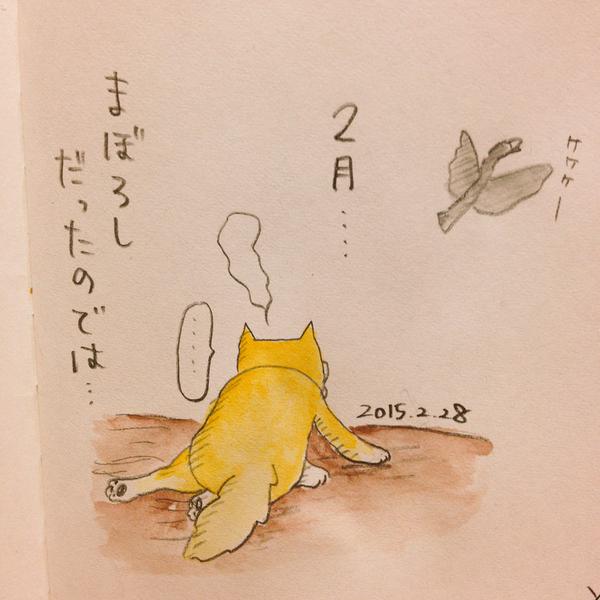 ケケケー
2月……
まぼろし
だったのでは…
……
2015.2.28